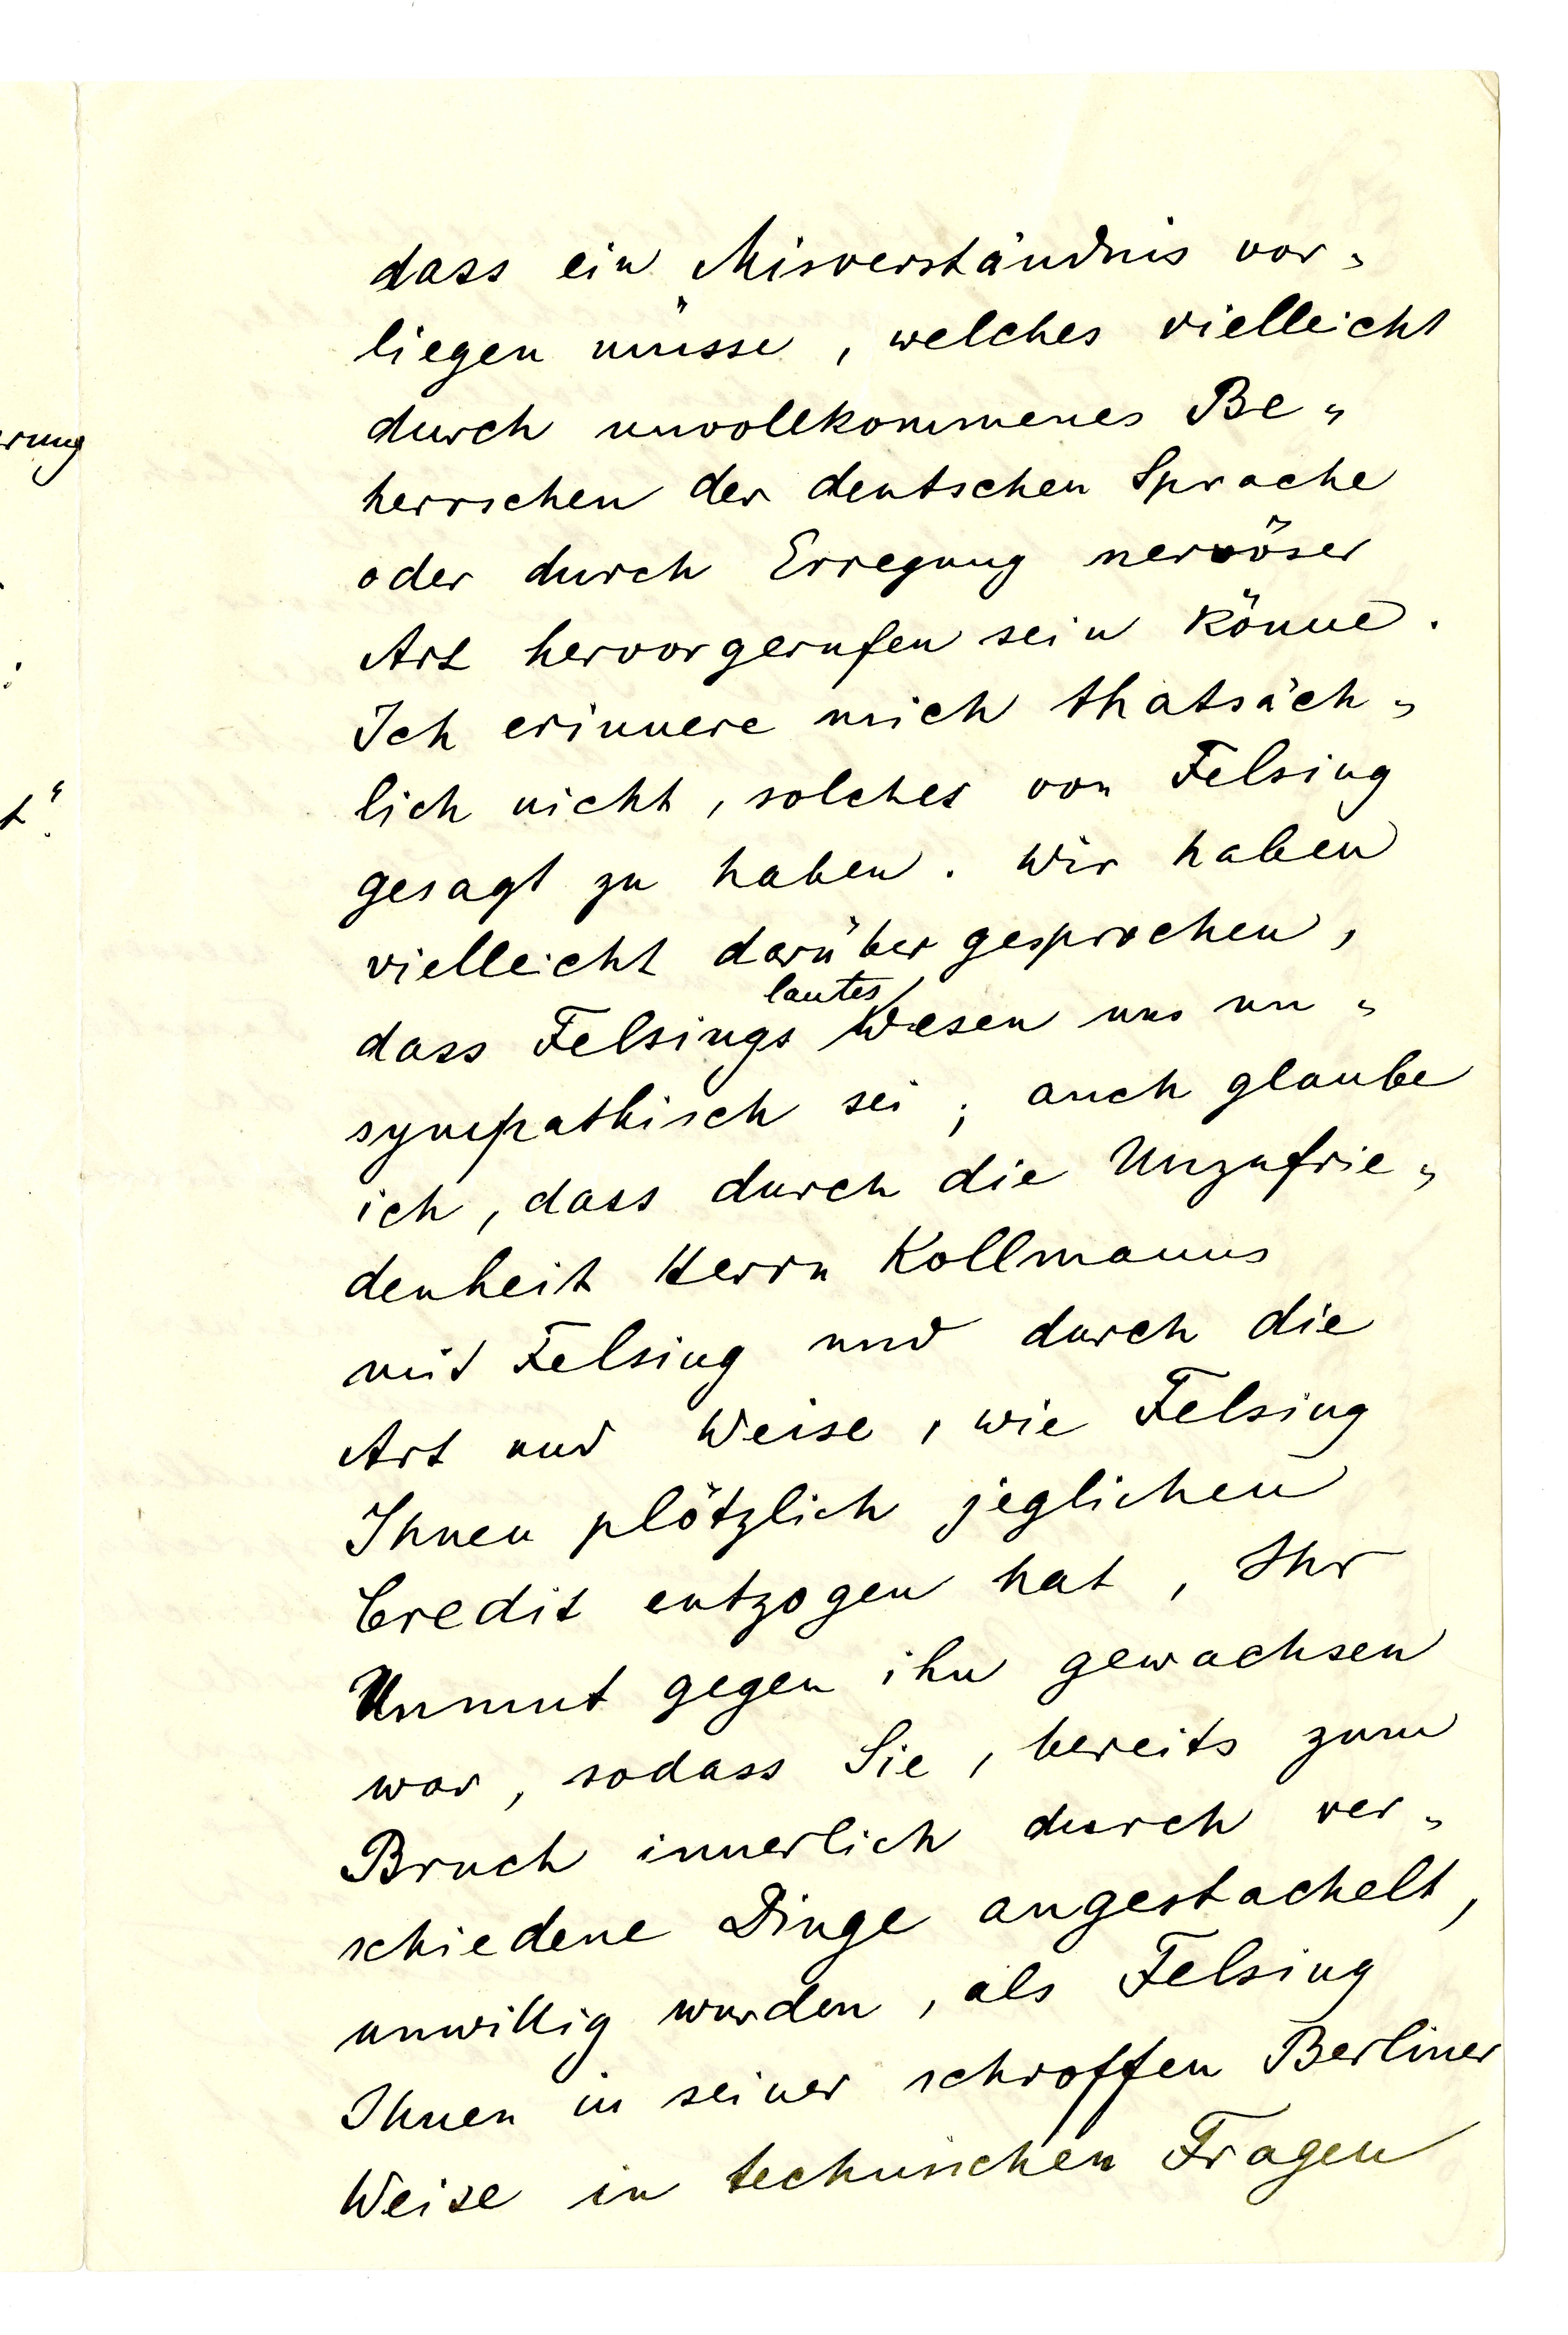 dass ein Misverständnis vor„
liegen müsse, welches vielleicht
durch unvollkommenes Be„
herrschen der deutschen Sprache
oder durch Erregung nervöser
Art hervorgerufen sein könne.
Ich erinnere mich thatsäch„
lich nicht, solches von Felsing
gesagt zu haben. Wir haben
vielleicht darüber gesprochen,
lautes
dass Felsings Wesen uns un„
sympathisch sei; auch glaube
ich, dass durch die Unzufrie„
denheit Herrn Kollmanns
mit Felsing und durch die
Art und Weise, wie Felsing
Ihnen plötzlich jeglichen
Credit entzogen hat, Ihr
Unmut gegen ihn gewachsen
war, sodass Sie, bereits zum
Bruch innerlich durch ver„
schiedene Dinge angestachelt,
unwillig wurden, als Felsing
Ihnen in seiner schroffen Berliner
Weise in technischen Fragen